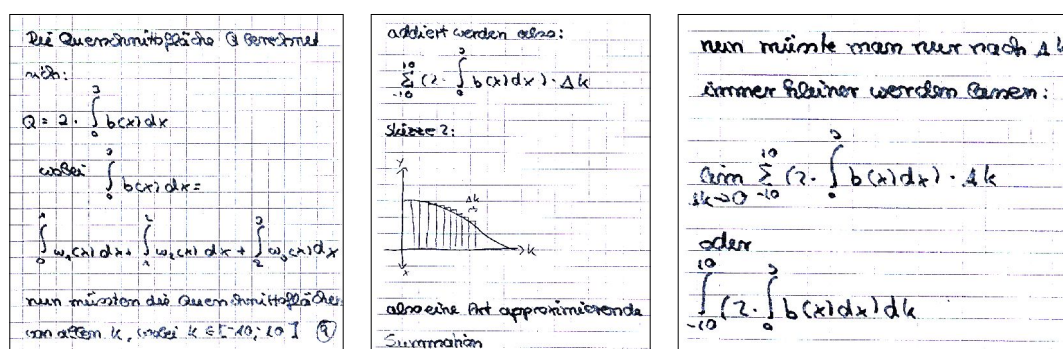 Die Querschnittsfläche Q berechnet
sich:
Q = 2 · ∫₀³ b(x) dx
wobei ∫₀³ b(x) dx =
∫₀¹ w₁(x) dx + ∫₁² w₂(x) dx + ∫₂³ w₃(x) dx
nun müssten die Querschnittsflächen
von allen k, wobei k ∈ [-10; 10]
addiert werden also:
∑₋₁₀¹⁰ (2 · ∫₀³ b(x) dx) · Δk
Skizze 2:
y
Δk
k
x
also eine Art approximierende
Summation
nun müsste man nur noch Δk
immer kleiner werden lassen:
lim Δk→0 ∑₋₁₀¹⁰ (2 · ∫₀³ b(x) dx) · Δk
oder
∫₋₁₀¹⁰ (2 · ∫₀³ b(x) dx) dk